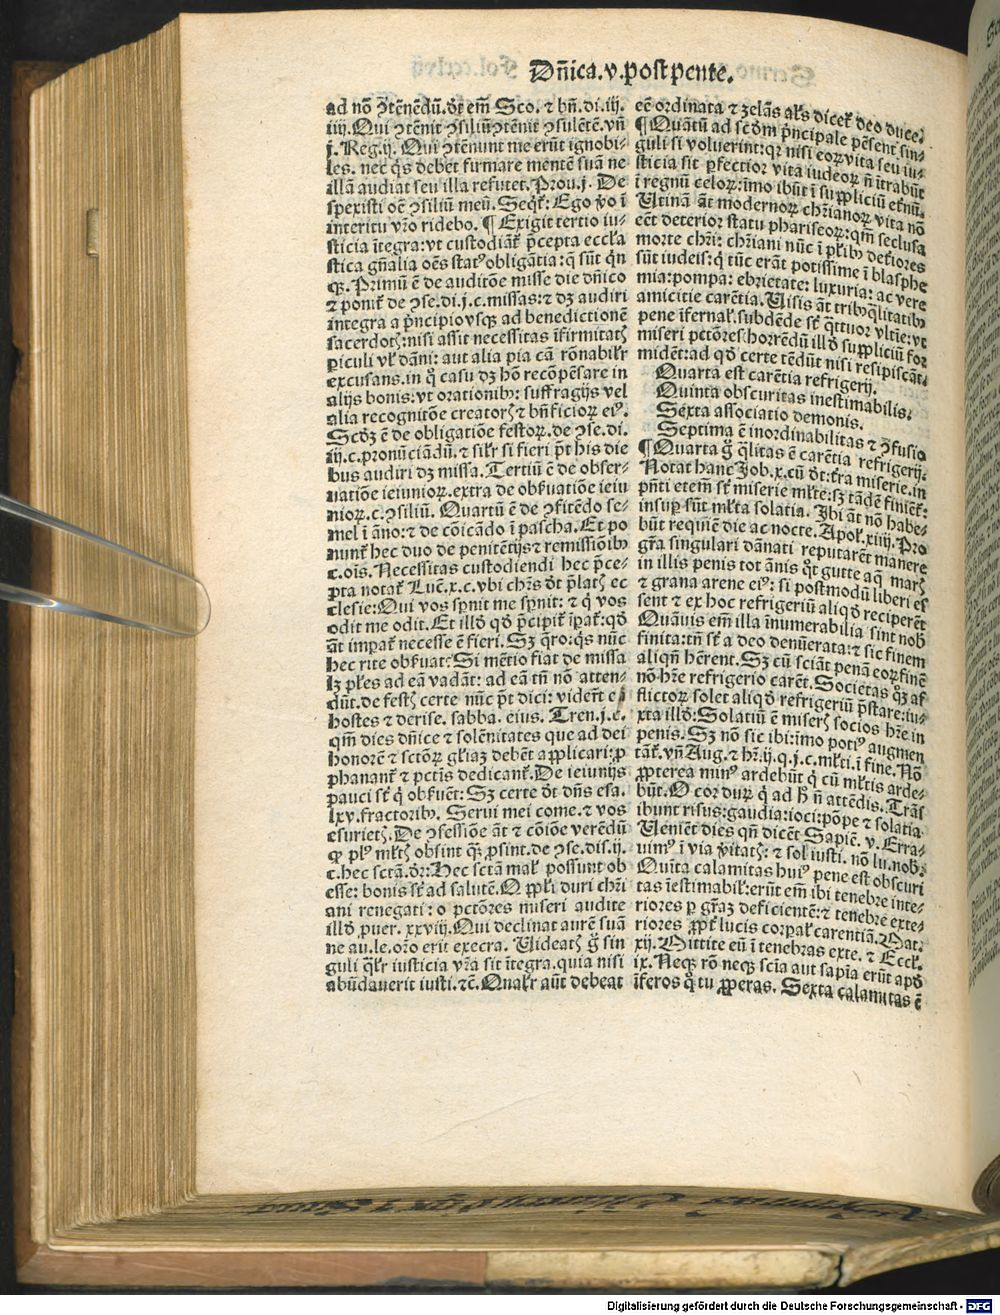 Dñica.v.post pente.
ad nõ ꝯtẽnẽdũ.õt em̃ Sco. ⁊ bñ.di.iij.
iiij.Qui ꝯtẽnit ꝯsiliũ ꝯtẽnit ꝯsulẽtẽ.vñ
j.Reg.ij. Qui ꝯtẽnunt me erũt ignobi⸗
les. nec q̃s debet firmare mentẽ suã ne
illã audiat seu illa refutet. Prou.j. De
spexisti oẽ ꝯsiliũ meũ. Seqť: Ego ṽo ĩ
interitu vr̃o ridebo. ¶ Exigit tertio iu⸗
sticia ĩtegra:vt custodiãť p̃cepta eccľa
stica gñalia oẽs statꝰ obligãtia: q̃ sũt q̃n
q̃.Primũ ẽ de auditõe misse die dñico
⁊ poniť de ꝯse.di.j.c.missas:⁊ dꝫ audiri
integra a p̃ncipio vsqꝫ ad benedictionẽ
sacerdotꝭ:nisi assit necessitas ĩfirmitatꝭ
ꝑiculi vľ dãni: aut alia pia cã rõnabiľr
excusans.in q̊ casu dꝫ hõ recõpẽsare in
alijs bonis: vt orationibꝰ: suffragijs vel
alia recognitõe creatorꝭ ⁊ bñficioꝝ eiꝰ.
Scďꝫ ẽ de obligatiõe festoꝝ.de ꝯse.di.
iij.c.pronũciãdũ.⁊ siľr si fieri p̃t his die
bus audiri dꝫ missa. Tertiũ ẽ de obser⸗
uatiõe ieiunioꝝ.extra de obẜuatiõe ieiu
nioꝝ.c.ꝯsiliũ. Quartũ ẽ de ꝯfitẽdo se⸗
mel ĩ ãno:⁊ de cõicãdo ĩ pascha. Et po
nunť hec duo de penitẽtijs ⁊ remissiõibꝰ
c.oĩs. Necessitas custodiendi hec p̃ce⸗
pta notať Luc̃.x.c.vbi chr̃s õt p̃latꝭ ec
clesie:Qui vos spñit me spñit: ⁊ q̃ vos
odit me odit. Et illď qď p̃cipiť ĩꝑať:qď
ãt impať necesse ẽ fieri. Sꝫ q̃ro:q̃s nũc
hec rite obẜuat: Si mẽtio fiat de missa
lꝫ pľes ad eã vadãt: ad eã tñ nõ atten⸗
dũt. de festꝭ certe nũc p̃t dici: viderũt eã
hostes ⁊ derise. sabba. eius. Tren.j.c.
qm̃ dies dñice ⁊ solẽnitates que ad dei
honorẽ ⁊ sctõꝝ gľiaꝫ debẽt applicari:ꝓ
phananť ⁊ pctĩs dedicanť.De ieiunijs
pauci sť q̃ obẜuẽt: Sꝫ certe õt dñs esa.
lxv.fractoribꝰ. Serui mei come.⁊ vos
esurietꝭ. De ꝯfessiõe ãt ⁊ cõiõe verẽdũ
qꝫ plꝰ mľtꝭ obsint q̃ꝫ ꝓsint.de ꝯse.dis.ij.
c.hec sctã.õr:Hec sctã maľ possunt ob
esse: bonis sť ad salutẽ. O ppľi duri chr̃i
ani renegati : o pctõres miseri audite
illď. ꝓuer. xxviij. Qui declinat aurẽ suã
ne au.le.or̃o erit execra. Videatꝭ g̃ sin
guli q̃liť iusticia vr̃a sit ĩtegra.quia nisi
abũdauerit iusti.⁊c̃.Qualr aũt debeat
eẽ ordinata ⁊ zelãs aľs dicet̃ deo duce.
¶ Quãtũ ad scďm p̃ncipale pẽsent sin⸗
guli si voluerint:qꝛ nisi eoꝝ vita seu iu⸗
sticia sit ꝑfectior vita iudeoꝝ ñ ĩtrabũt
ĩ regnũ celoꝝ:ĩmo ibũt ĩ suppliciũ etñũ.
Utinã ãt modernoꝝ chr̃ianoꝝ vita nõ
eẽt deterior statu phariseoꝝ:qm̃ seclusa
morte chr̃i: chr̃iani nũc ĩ pľibꝰ deťiores
sũt iudeis:q̃ tũc erãt potissime ĩ blasphe
mia:pompa: ebrietate: luxuria: ac vere
amicitie carẽtia. Visis ãt tribꝰ q̃litatibꝰ
pene ĩfernaľ.subdẽde sť q̃ttuor vltĩe:vt
miseri pctõres horrẽdũ illď suppliciũ for
midẽt:ad qď certe tẽdũt nisi resipiscãt.
Quarta est carẽtia refrigerij.
Quinta obscuritas inestimabilis.
Sexta associatio demonis.
Septima ẽ inordinabilitas ⁊ ꝯfusio
¶ Quarta g̃ q̃litas ẽ carẽtia refrigerij.
Notat hanc Job. x. cũ õt:tr̃a miserie.in
pñti etem̃ sť miserie mľte:sꝫ tãdẽ finieť:
insuꝑ sũt mľta solatia. Ibi ãt nõ habe⸗
bũt requiẽ die ac nocte. Apoľ.xiiij. Pro
gr̃a singulari dãnati reputarẽt manere
in illis penis tot ãnis q̊t gutte aq̃ marꝭ
⁊ grana arene eiꝰ: si postmodũ liberi es
sent ⁊ ex hoc refrigeriũ aliqď reciperẽt
Quãuis em̃ illa ĩnumerabilia sint nobꝭ
finita:tñ sť a deo denũerata:⁊ sic finem
aliqñ hẽrent. Sꝫ cũ sciãt penã eoꝝ finẽ
nõ hr̃e refrigerio carẽt. Societas q̃ꝫ af
flictoꝝ solet aliqď refrigeriũ p̃stare:iu⸗
xta illď:Solatiũ ẽ miserꝭ socios hr̃e in
penis. Sꝫ nõ sic ibi:ĩmo potiꝰ augmen
tãť. vñ Aug. ⁊ hr̃.ij.q.j.c.mľti.ĩ fine. Nõ
ꝓpterea minꝰ ardebũt q̃ cũ mľtis arde⸗
bũt. O cor duꝝ q̃ ad h̃ ñ attẽdis. Trãs
ibunt risus: gaudia: ioci: põpe ⁊ solatia
Veniẽt dies qñ dicẽt Sapiẽ. v. Erra⸗
uimꝰ ĩ via ṽitatꝭ: ⁊ sol iusti. nõ lu.nobꝭ.
Quĩta calamitas huiꝰ pene est obscuri
tas ĩestimabiľ:erũt em̃ ibi tenebre inte⸗
riores ꝑ gr̃aꝫ deficientẽ:⁊ tenebre exte⸗
riores ꝓpť lucis corꝑaľ carentiã. Mat.
xij. Mittite eũ ĩ tenebras exte. ⁊ Eccľ.
ix. Neqꝫ rõ neqꝫ scĩa aut sapĩa erũt apď
ĩferos q̊ tu ꝓperas. Sexta calamitas ẽ
Digitalisierung gefördert durch die Deutsche Forschungsgemeinschaft - DFG